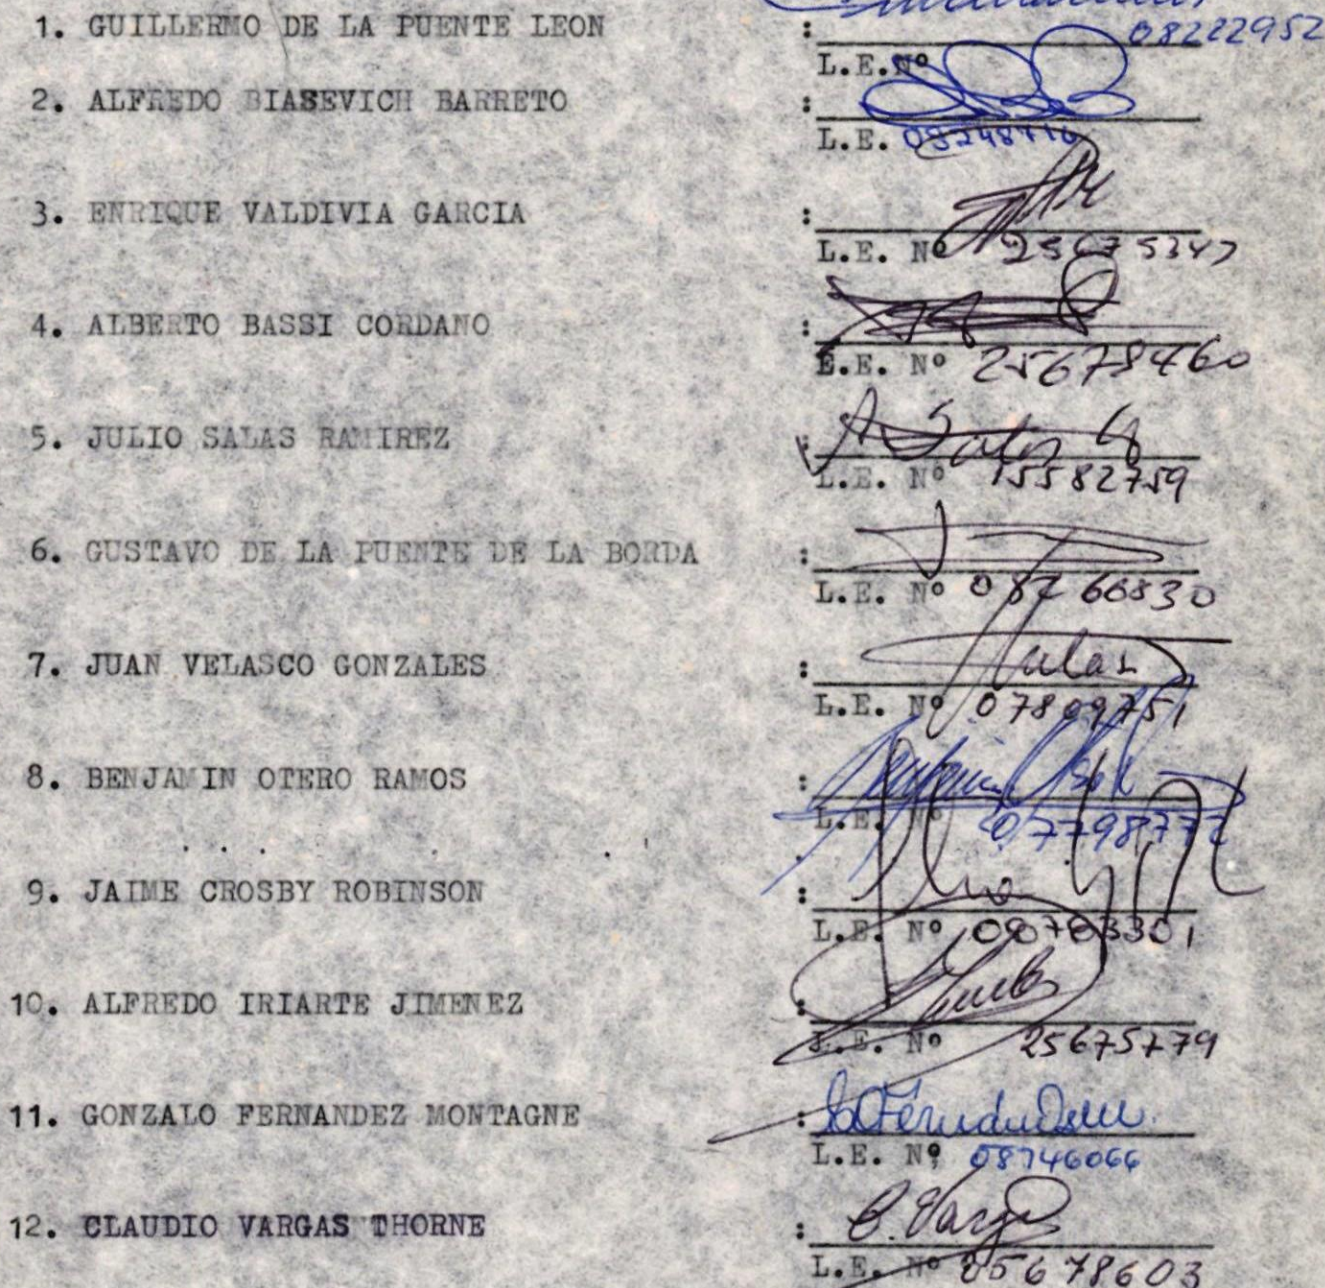 1. GUILLERMO DE LA PUENTE LEON : 08222952
L.E.Nº
2. ALFREDO BIASEVICH BARRETO :
L.E. 08248716
3. ENRIQUE VALDIVIA GARCIA :
L.E. Nº 25675347
4. ALBERTO BASSI CORDANO :
E.E. Nº 25678460
5. JULIO SALAS RAMIREZ :
L.E. Nº 15582759
6. GUSTAVO DE LA PUENTE DE LA BORDA :
L.E. Nº 08266830
7. JUAN VELASCO GONZALES :
L.E. Nº 07809751
8. BENJAMIN OTERO RAMOS :
L.E. Nº 07798772
9. JAIME CROSBY ROBINSON :
L.E. Nº
10. ALFREDO IRIARTE JIMENEZ :
L.E. Nº 25675779
11. GONZALO FERNANDEZ MONTAGNE :
L.E. Nº 08746066
12. CLAUDIO VARGAS THORNE : C. Vargas
L.E. Nº 25678603